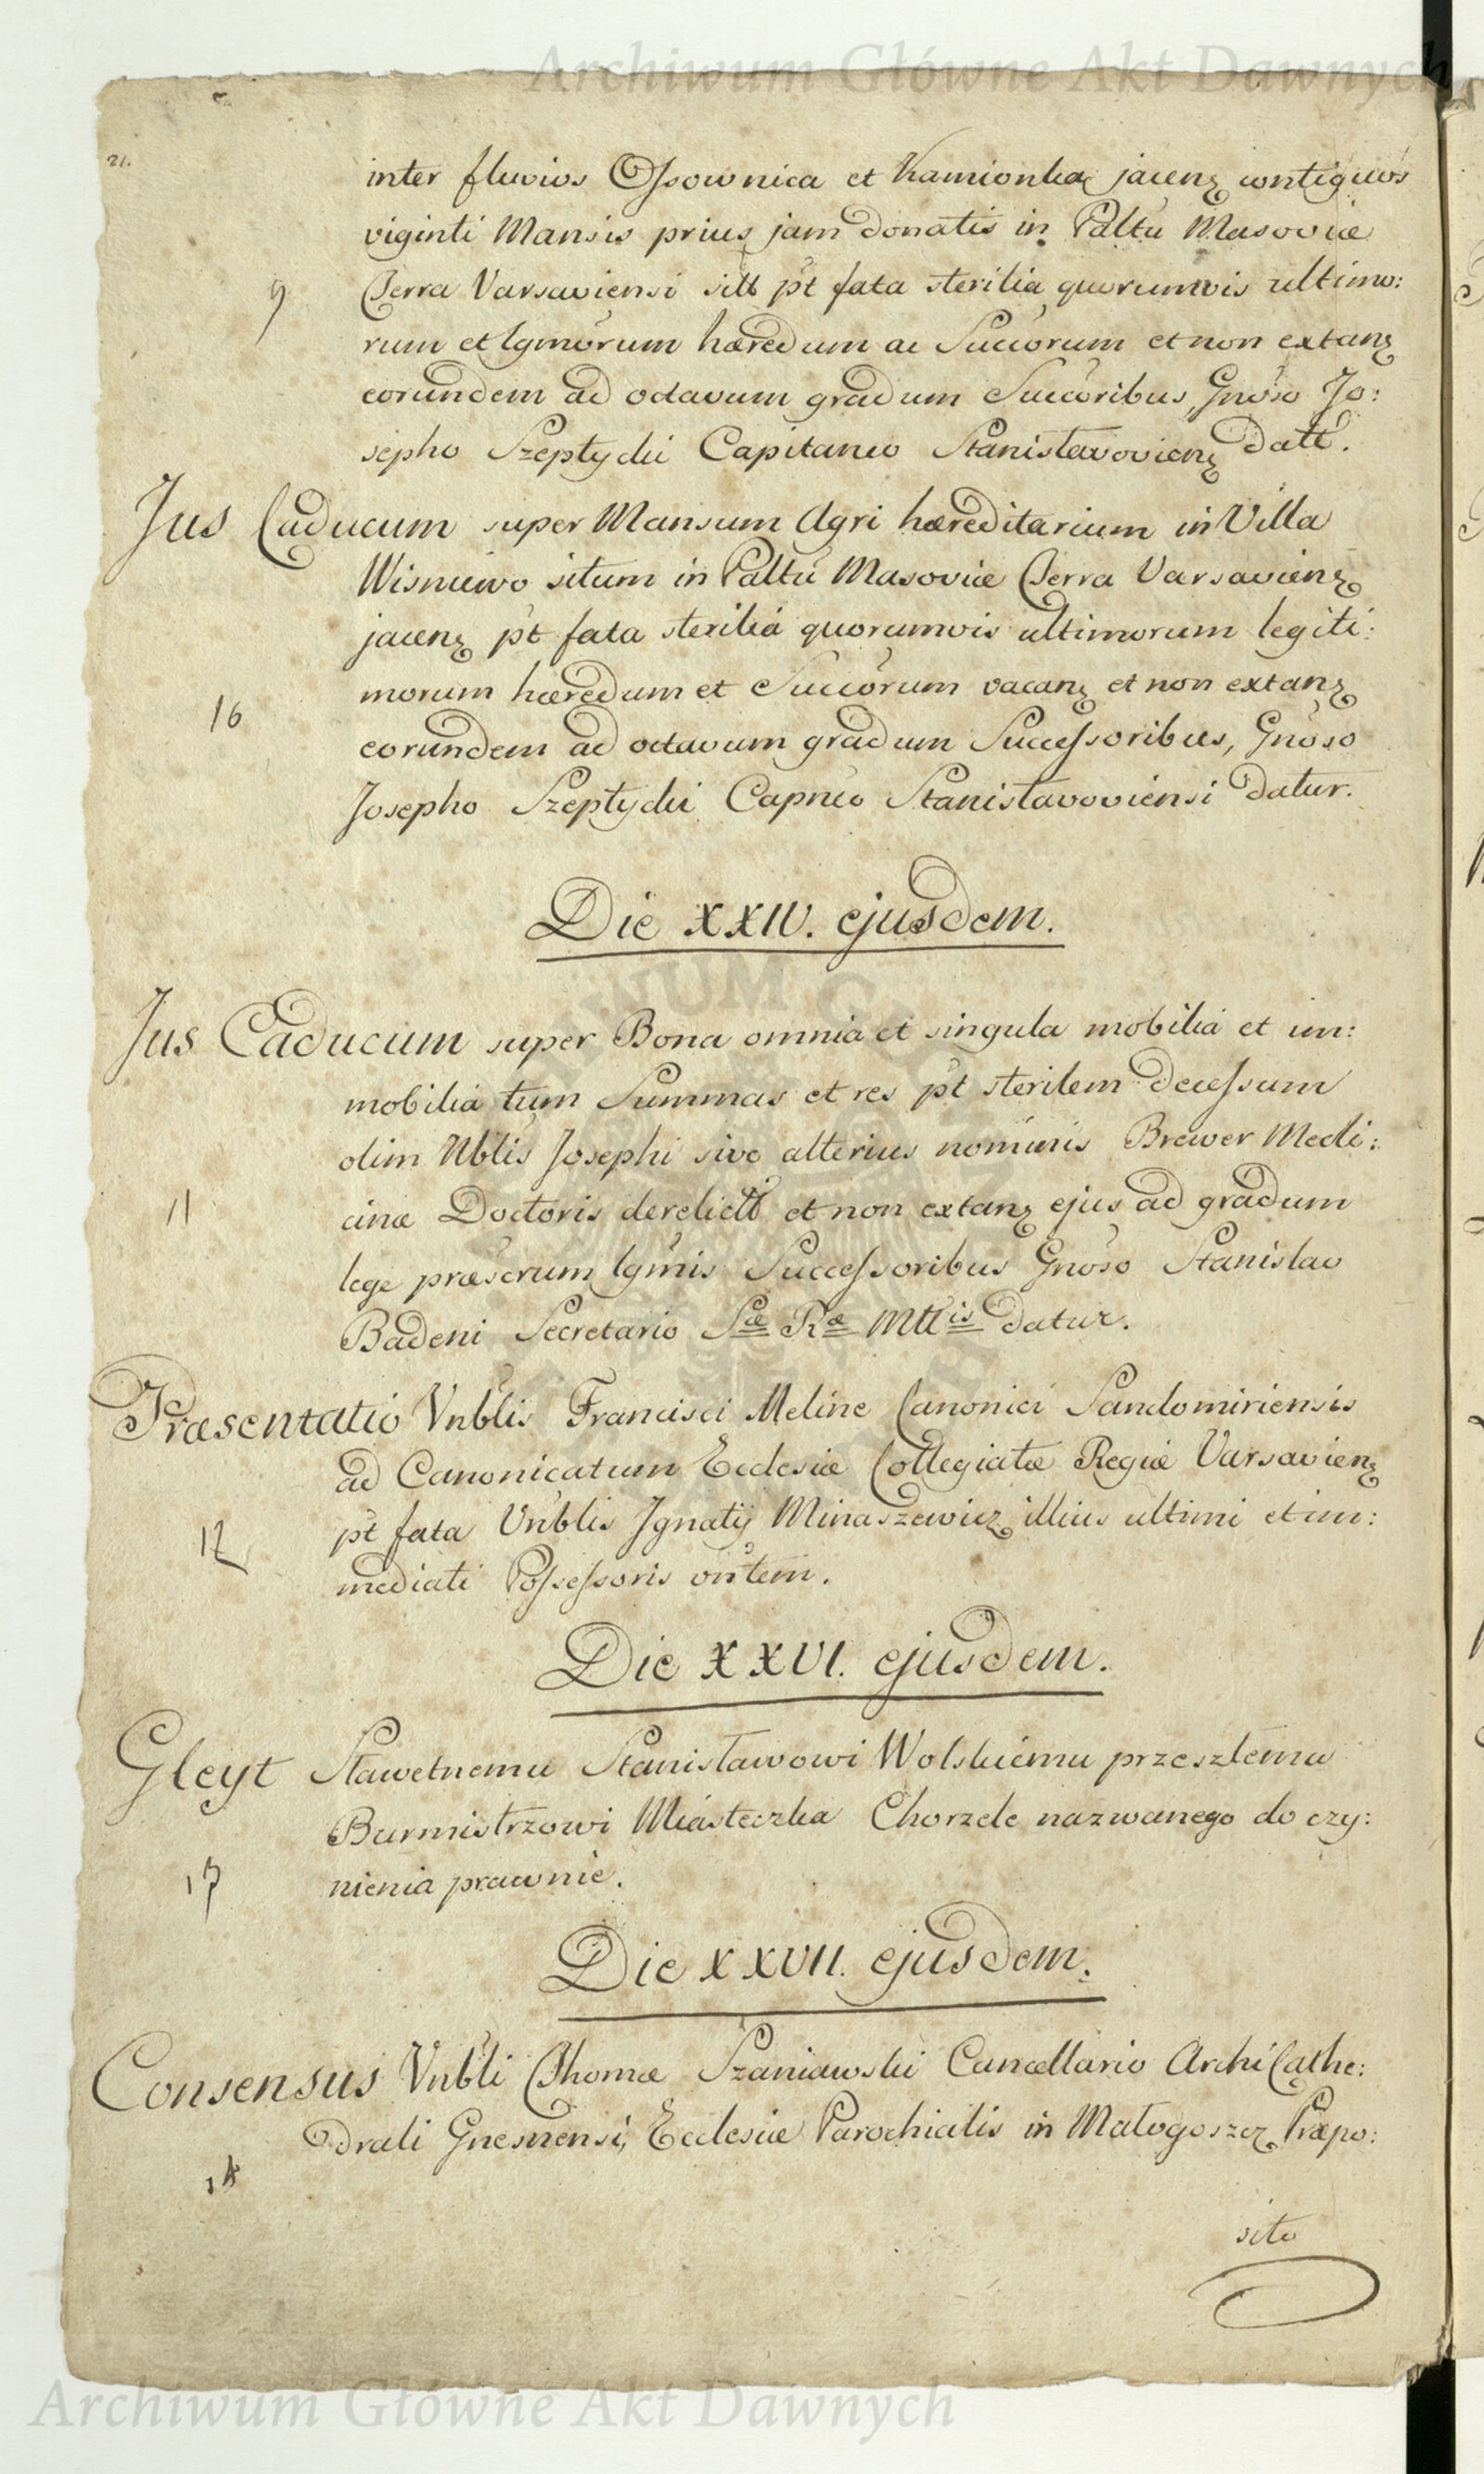 Archiwum Główne Akt Dawnych
21.
inter fluvios Ossownica et Kamionka jacenz contiguos
viginti Mansis prius jam donatis in Paltu Masoviæ
9 Terra Varsaviensi sitt pt fata sterilia quorumvis ultimo:
rum et lgmorum hæredum ac Succorum et non extanz
eorundem ad octavum gradum Succoribus, Gnoso Jo:
sepho Szeptycki Capitaneo Stanislavovienz datt.
Jus Caducum super Mansum Agri hæreditarium in Villa
Wisniewo situm in Paltu Masoviæ Terra Varsavienz
jacenz pt fata sterilia quorumvis ultimorum legiti:
morum hæredum et Succorum vacanz et non extanz
10 eorundem ad octavum gradum Successoribus, Gnoso
Josepho Szeptycki Capneo Stanislavoviensi datur.
Die XXIV. ejusdem.
Jus Caducum super Bona omnia et singula mobilia et im:
mobilia tum Summas et res pt sterilem decessum
olim Nblis Josephi sive alterius nominis Brewer Medi:
11 cinæ Doctoris derelictt et non extanz ejus ad gradum
lege præscrum lgmis Successoribus Gnoso Stanislao
Badeni Secretario Sæ Ræ Mttis datur.
Præsentatio Vnblis Francisci Meline Canonici Sandomiriensis
ad Canonicatum Ecclesiæ Collegiatæ Regiæ Varsavienz
12 pt fata Vnblis Ignatij Minaszewicz illius ultimi et im:
mediati Possessoris vntem.
Die XXVI. ejusdem.
Gleyt Sławetnemu Stanisławowi Wolskiemu przeszłemu
Burmistrzowi Miasteczka Chorzele nazwanego do czy:
13 nienia prawnie.
Die XXVII. ejusdem.
Consensus Vnbli Thomæ Szaniawski Cancellario Archi Cathe:
drali Gnesnensi, Ecclesiæ Parochialis in Małogoszcz Præpo:
14
sito
Archiwum Główne Akt Dawnych